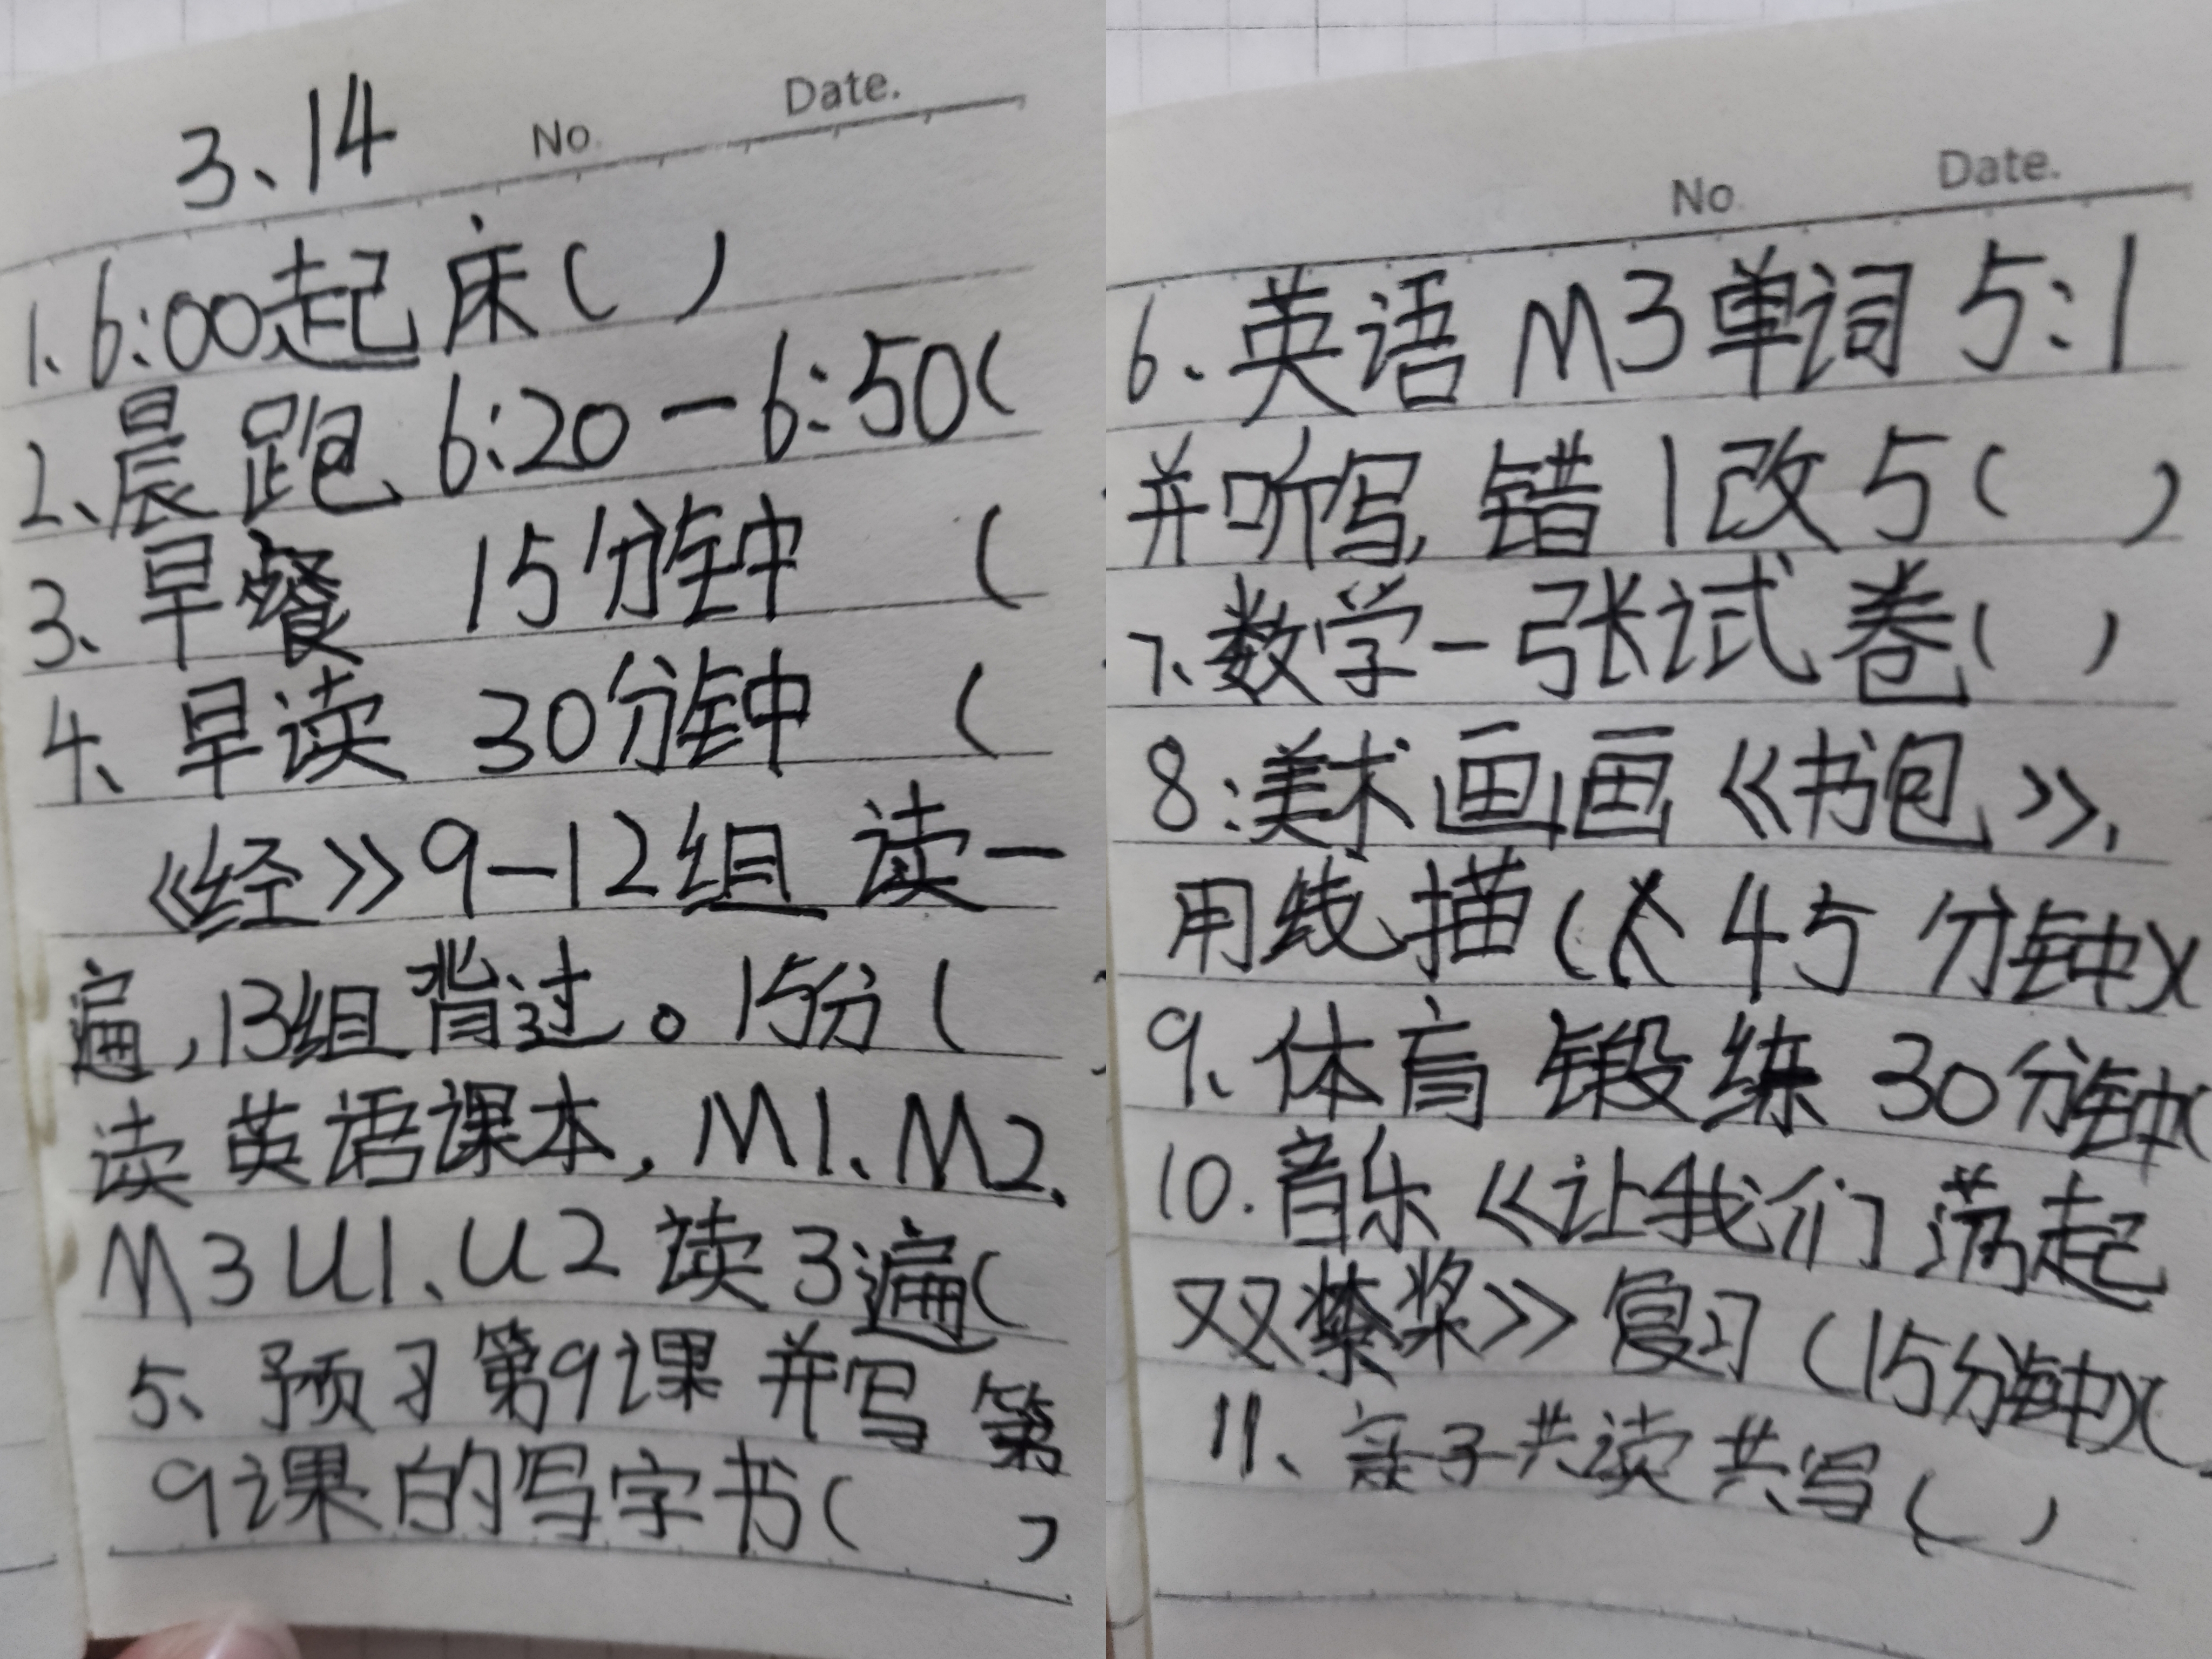 3、14 No. Date.
1、6:00起床( )
2、晨跑 6:20-6:50(
3、早餐 15分钟 (
4、早读 30分钟 (
《经》9-12组 读一
遍,13组背过。15分(
读英语课本,M1、M2、
M3U1、U2读3遍(
5、预习第9课并写第
9课的写字书( )
No. Date.
6.英语M3单词5:1
并听写,错1改5( )
7、数学一张试卷( )
8:美术画画《书包》,
用线描( 45分钟)(
9、体育锻练30分钟(
10.音乐《让我们荡起
双桨》复习(15分钟)(
11、亲子共读共写( )